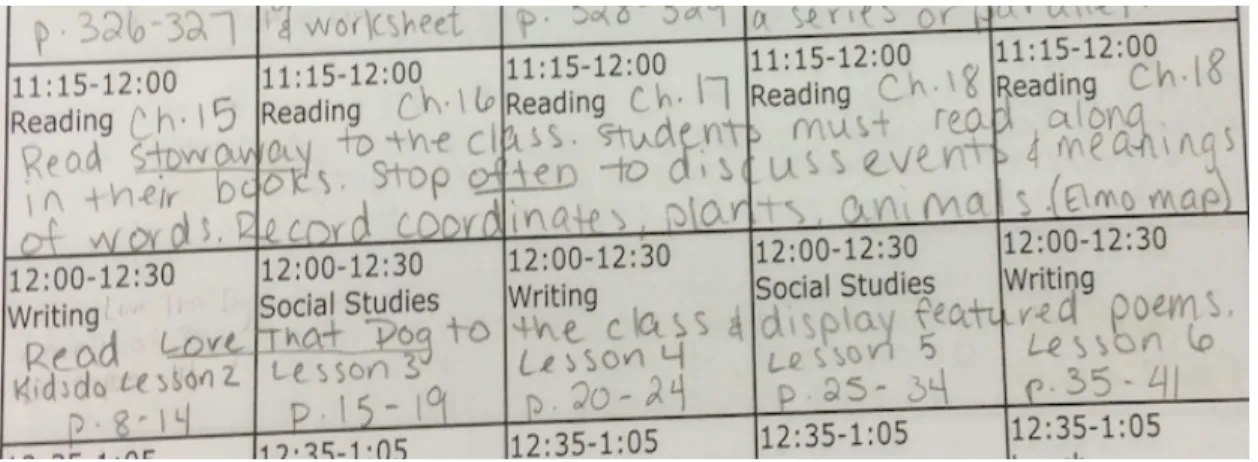 p. 326-327 & worksheet p. 328-329 a series or parallel.
11:15-12:00 11:15-12:00 11:15-12:00 11:15-12:00 11:15-12:00
Reading Ch. 15 Reading Ch. 16 Reading Ch. 17 Reading Ch. 18 Reading Ch. 18
Read Stowaway to the class. Students must read along
in their books. Stop often to discuss events & meanings
of words. Record coordinates, plants, animals. (Elmo map)
12:00-12:30 12:00-12:30 12:00-12:30 12:00-12:30 12:00-12:30
Writing Social Studies Writing Social Studies Writing
Read Love That Dog to the class & display featured poems.
Kids do Lesson 2 Lesson 3 Lesson 4 Lesson 5 Lesson 6
p. 8-14 p. 15-19 p. 20-24 p. 25-34 p. 35-41
12:35-1:05 12:35-1:05 12:35-1:05 12:35-1:05 12:35-1:05